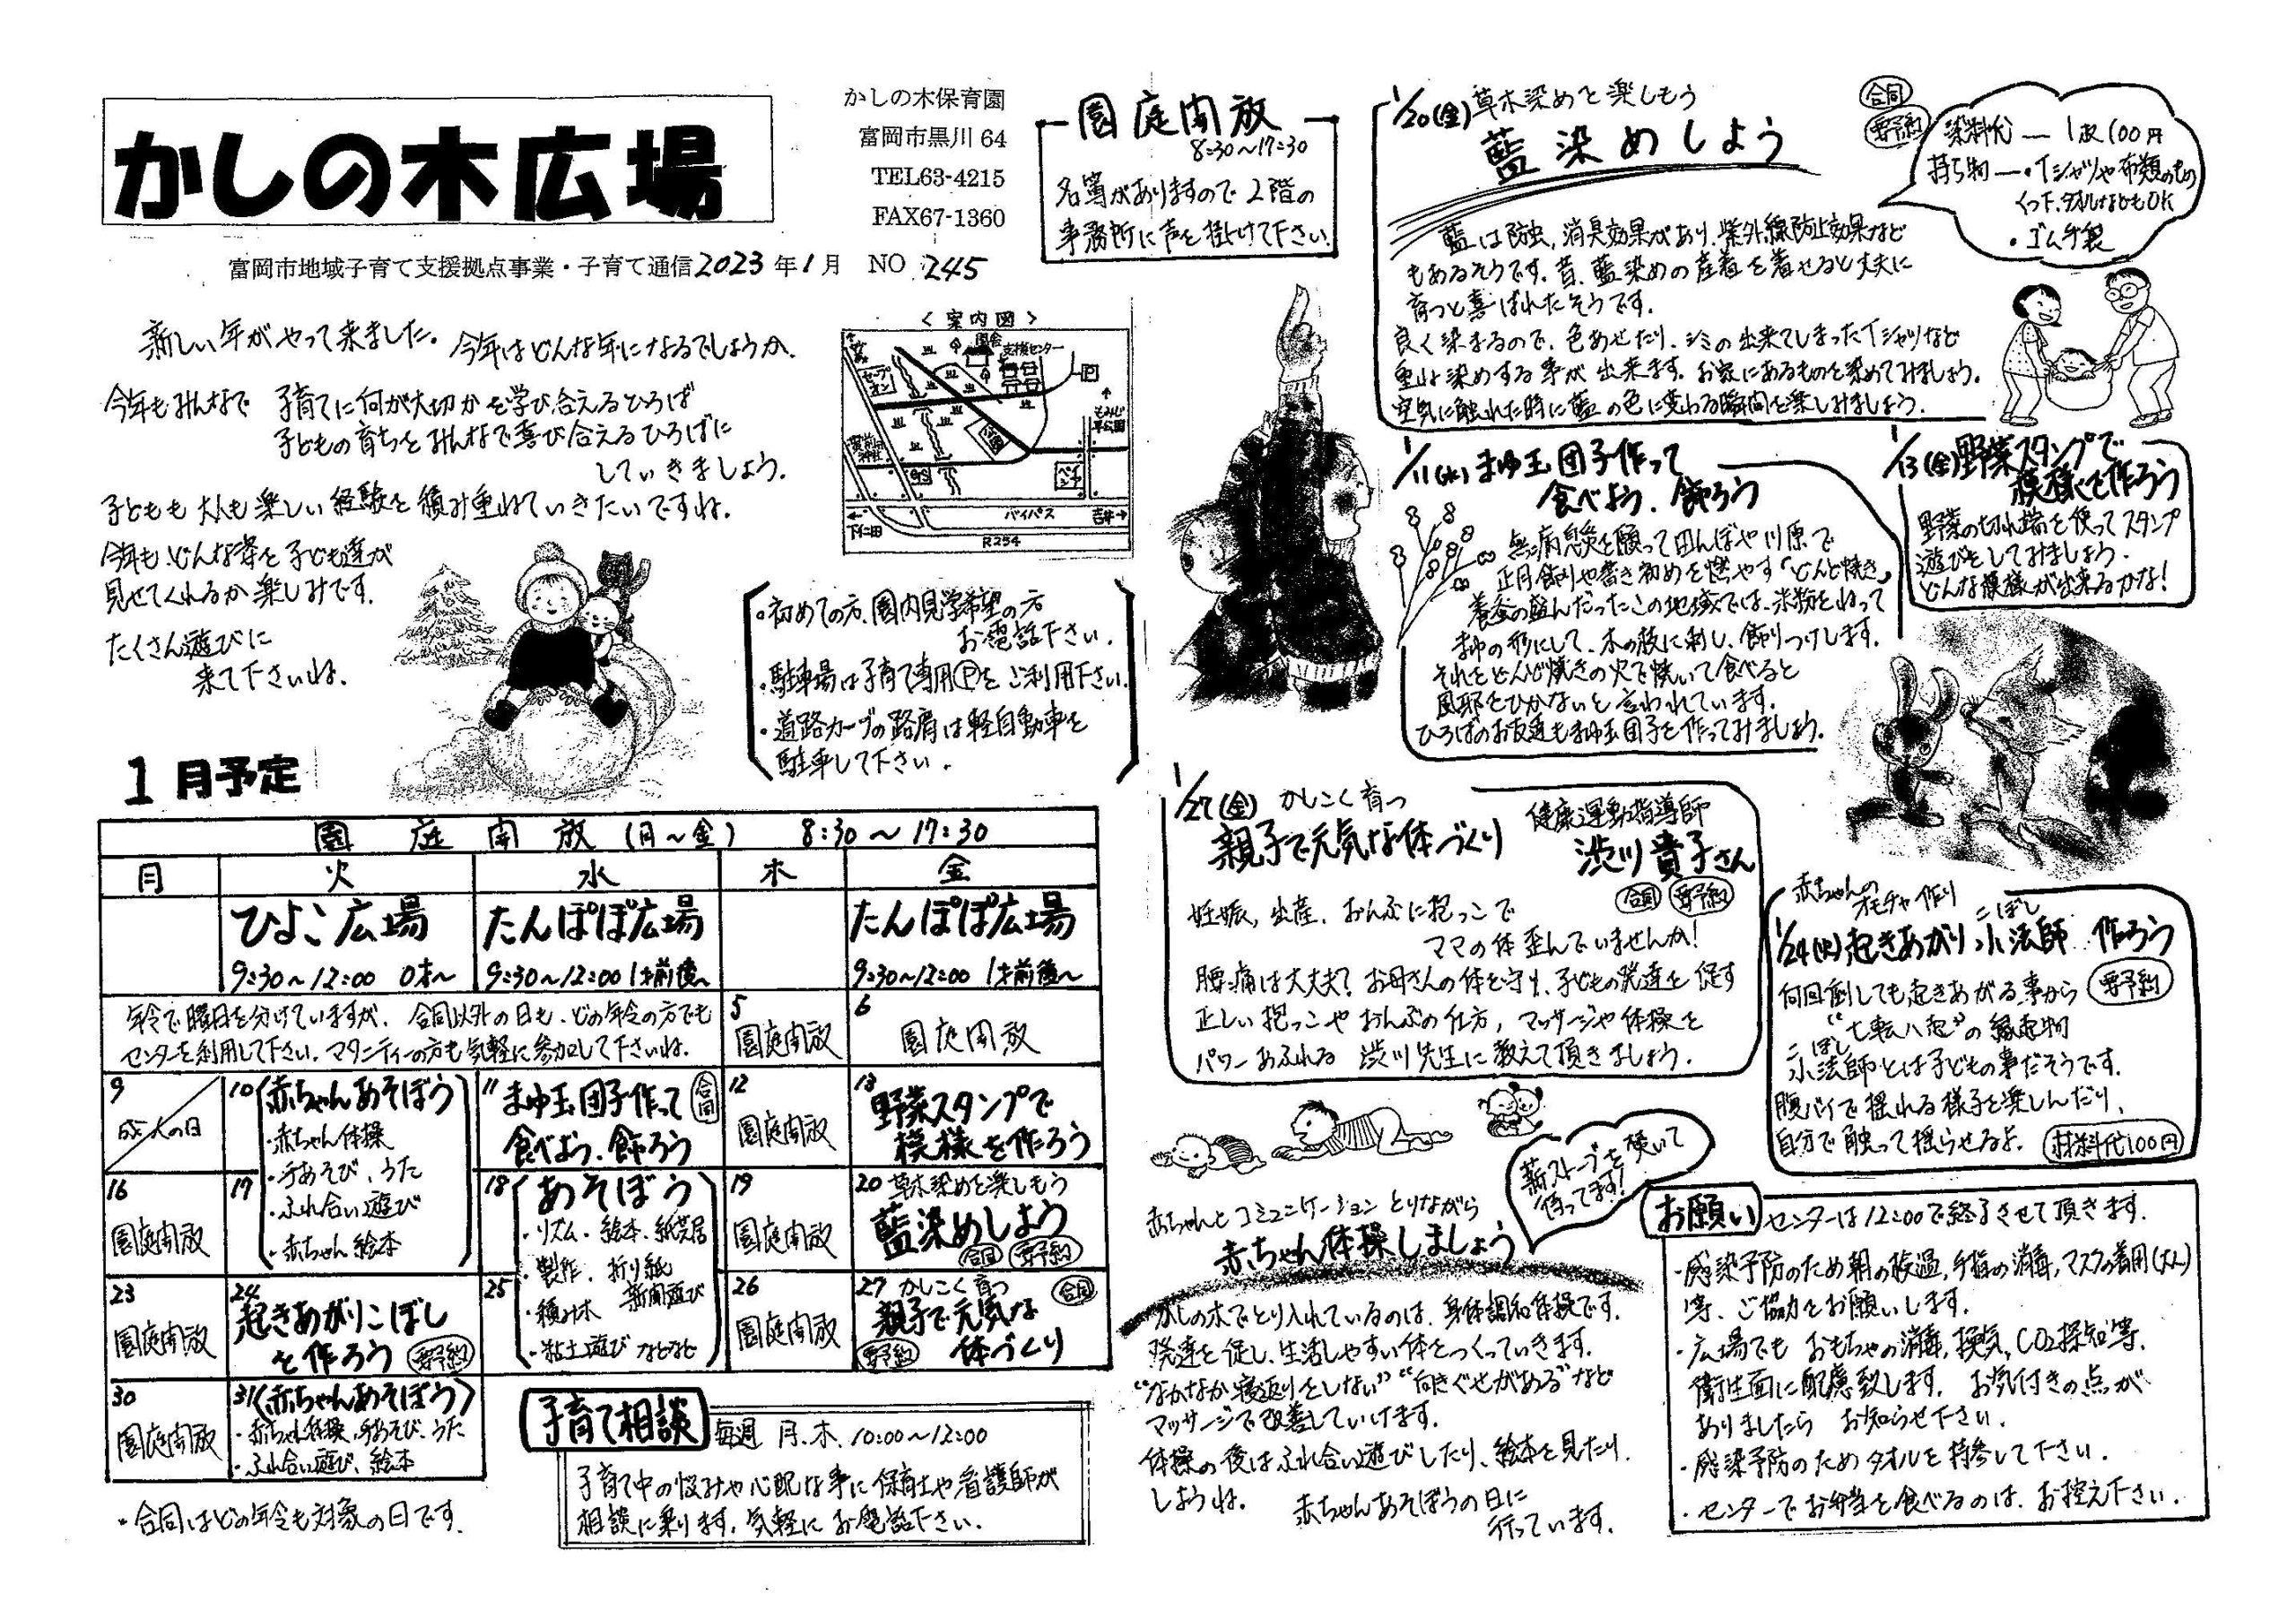 かしの木広場
かしの木保育園
富岡市黒川 64
TEL63-4215
FAX67-1360
富岡市地域子育て支援拠点事業・子育て通信 2023 年 1 月 NO 245
新しい年がやって来ました。今年はどんな年になるでしょうか。
今年もみんなで 子育てに何が大切かを学び合えるひろば
子どもの育ちをみんなで喜び合えるひろばに
していきましょう。
子どもも大人も楽しい経験を積み重ねていきたいですね。
今年も、どんな姿を子ども達が
見せてくれるか楽しみです。
たくさん遊びに
来て下さいね。
<案内図>
園舎
支援センター
セーブオン
GS
バイパス
下仁田
吉井
R254
・初めての方、園内見学希望の方
お電話下さい。
・駐車場は子育て専用Ⓟをご利用下さい。
・道路カーブの路肩は軽自動車を
駐車して下さい。
1月予定
園庭開放(月~金) 8:30~17:30
月 火 水 木 金
ひよこ広場 たんぽぽ広場 たんぽぽ広場
9:30~12:00 0才~ 9:30~12:00 1才前後~ 9:30~12:00 1才前後~
年令で曜日を分けていますが、合同以外の日も、どの年令の方でも
センターを利用して下さい。マタニティーの方も気軽に参加して下さいね。
5 園庭開放
6 園庭開放
9 成人の日
10 (赤ちゃんあそぼう)
・赤ちゃん体操
・手あそび、うた
・ふれ合い遊び
・赤ちゃん絵本
11 まゆ玉団子作って 合同
食べよう、飾ろう
12 園庭開放
13 野菜スタンプで
模様を作ろう
16 園庭開放
17
18 (あそぼう)
・リズム・絵本、紙芝居
・製作、折り紙
・積み木 新聞遊び
・粘土遊び などなど
19 園庭開放
20 草木染めを楽しもう
藍染めしよう
合同 要予約
23 園庭開放
24 起きあがりこぼし
を作ろう 要予約
25
26 園庭開放
27 かしこく育つ 合同
親子で元気な
要予約 体づくり
30 園庭開放
31 (赤ちゃんあそぼう)
・赤ちゃん体操、手あそび、うた
・ふれ合い遊び、絵本
・合同はどの年令も対象の日です。
子育て相談 毎週 月、木、10:00~12:00
子育て中の悩みや心配な事に保育士や看護師が
相談に乗ります。気軽にお電話下さい。
園庭開放
8:30~17:30
名簿がありますので2階の
事務所に声を掛けて下さい。
1/20(金) 草木染めを楽しもう
藍染めしよう
合同
要予約
染料代 ― 1枚100円
持ち物 ―・Tシャツや布類のもの
くつ下、タオルなどもOK
・ゴム手袋
藍は防虫、消臭効果があり、紫外線防止効果など
もあるそうです。昔、藍染めの産着を着せると丈夫に
育つと喜ばれたそうです。
良く染まるので、色あせたり、シミの出来てしまったTシャツなど
重ね染めする事が出来ます。お家にあるものを染めてみましょう。
空気に触れた時に藍の色に変わる瞬間を楽しみましょう。
1/11(水) まゆ玉団子作って
食べよう、飾ろう
無病息災を願って田んぼや川原で
正月飾りや書き初めを燃やす「どんど焼き」
養蚕の盛んだったこの地域では、米粉をねって
まゆの形にして、木の枝に刺し、飾りつけします。
それをどんど焼きの火で焼いて食べると
風邪をひかないと言われています。
ひろばのお友達もまゆ玉団子を作ってみましょう。
1/13(金) 野菜スタンプで
模様を作ろう
野菜の切れ端を使ってスタンプ
遊びをしてみましょう。
どんな模様が出来るかな!
1/27(金) かしこく育つ
親子で元気な体づくり
健康運動指導師
渋川貴子さん
合同 要予約
妊娠、出産、おんぶに抱っこで
ママの体歪んでいませんか!
腰痛は大丈夫?お母さんの体を守り、子どもの発達を促す
正しい抱っこやおんぶの仕方、マッサージや体操を
パワーあふれる 渋川先生に教えて頂きましょう。
赤ちゃんのオモチャ作り
1/24(火) 起きあがり小法師 作ろう
こぼし
要予約
何回倒しても起きあがる事から
“七転八起”の縁起物
こぼし
小法師とは子どもの事だそうです。
腹バイで揺れる様子を楽しんだり、
自分で触って揺らせるよ。 材料代100円
薪ストーブを焚いて
待ってます!
赤ちゃんとコミュニケーションとりながら
赤ちゃん体操しましょう
かしの木でとり入れているのは、身体調和体操です。
発達を促し、生活しやすい体をつくっていきます。
“なかなか寝返りをしない”“向きぐせがある”など
マッサージで改善していけます。
体操の後はふれ合い遊びしたり、絵本を見たり
しようね。 赤ちゃんあそぼうの日に
行っています。
お願い センターは12:00で終了させて頂きます。
・感染予防のため朝の検温、手指の消毒、マスクの着用(大人)
等、ご協力をお願いします。
・広場でも おもちゃの消毒、換気、CO2探知等、
衛生面に配慮致します。お気付きの点が
ありましたら お知らせ下さい。
・感染予防のためタオルを持参して下さい。
・センターでお弁当を食べるのは、お控え下さい。